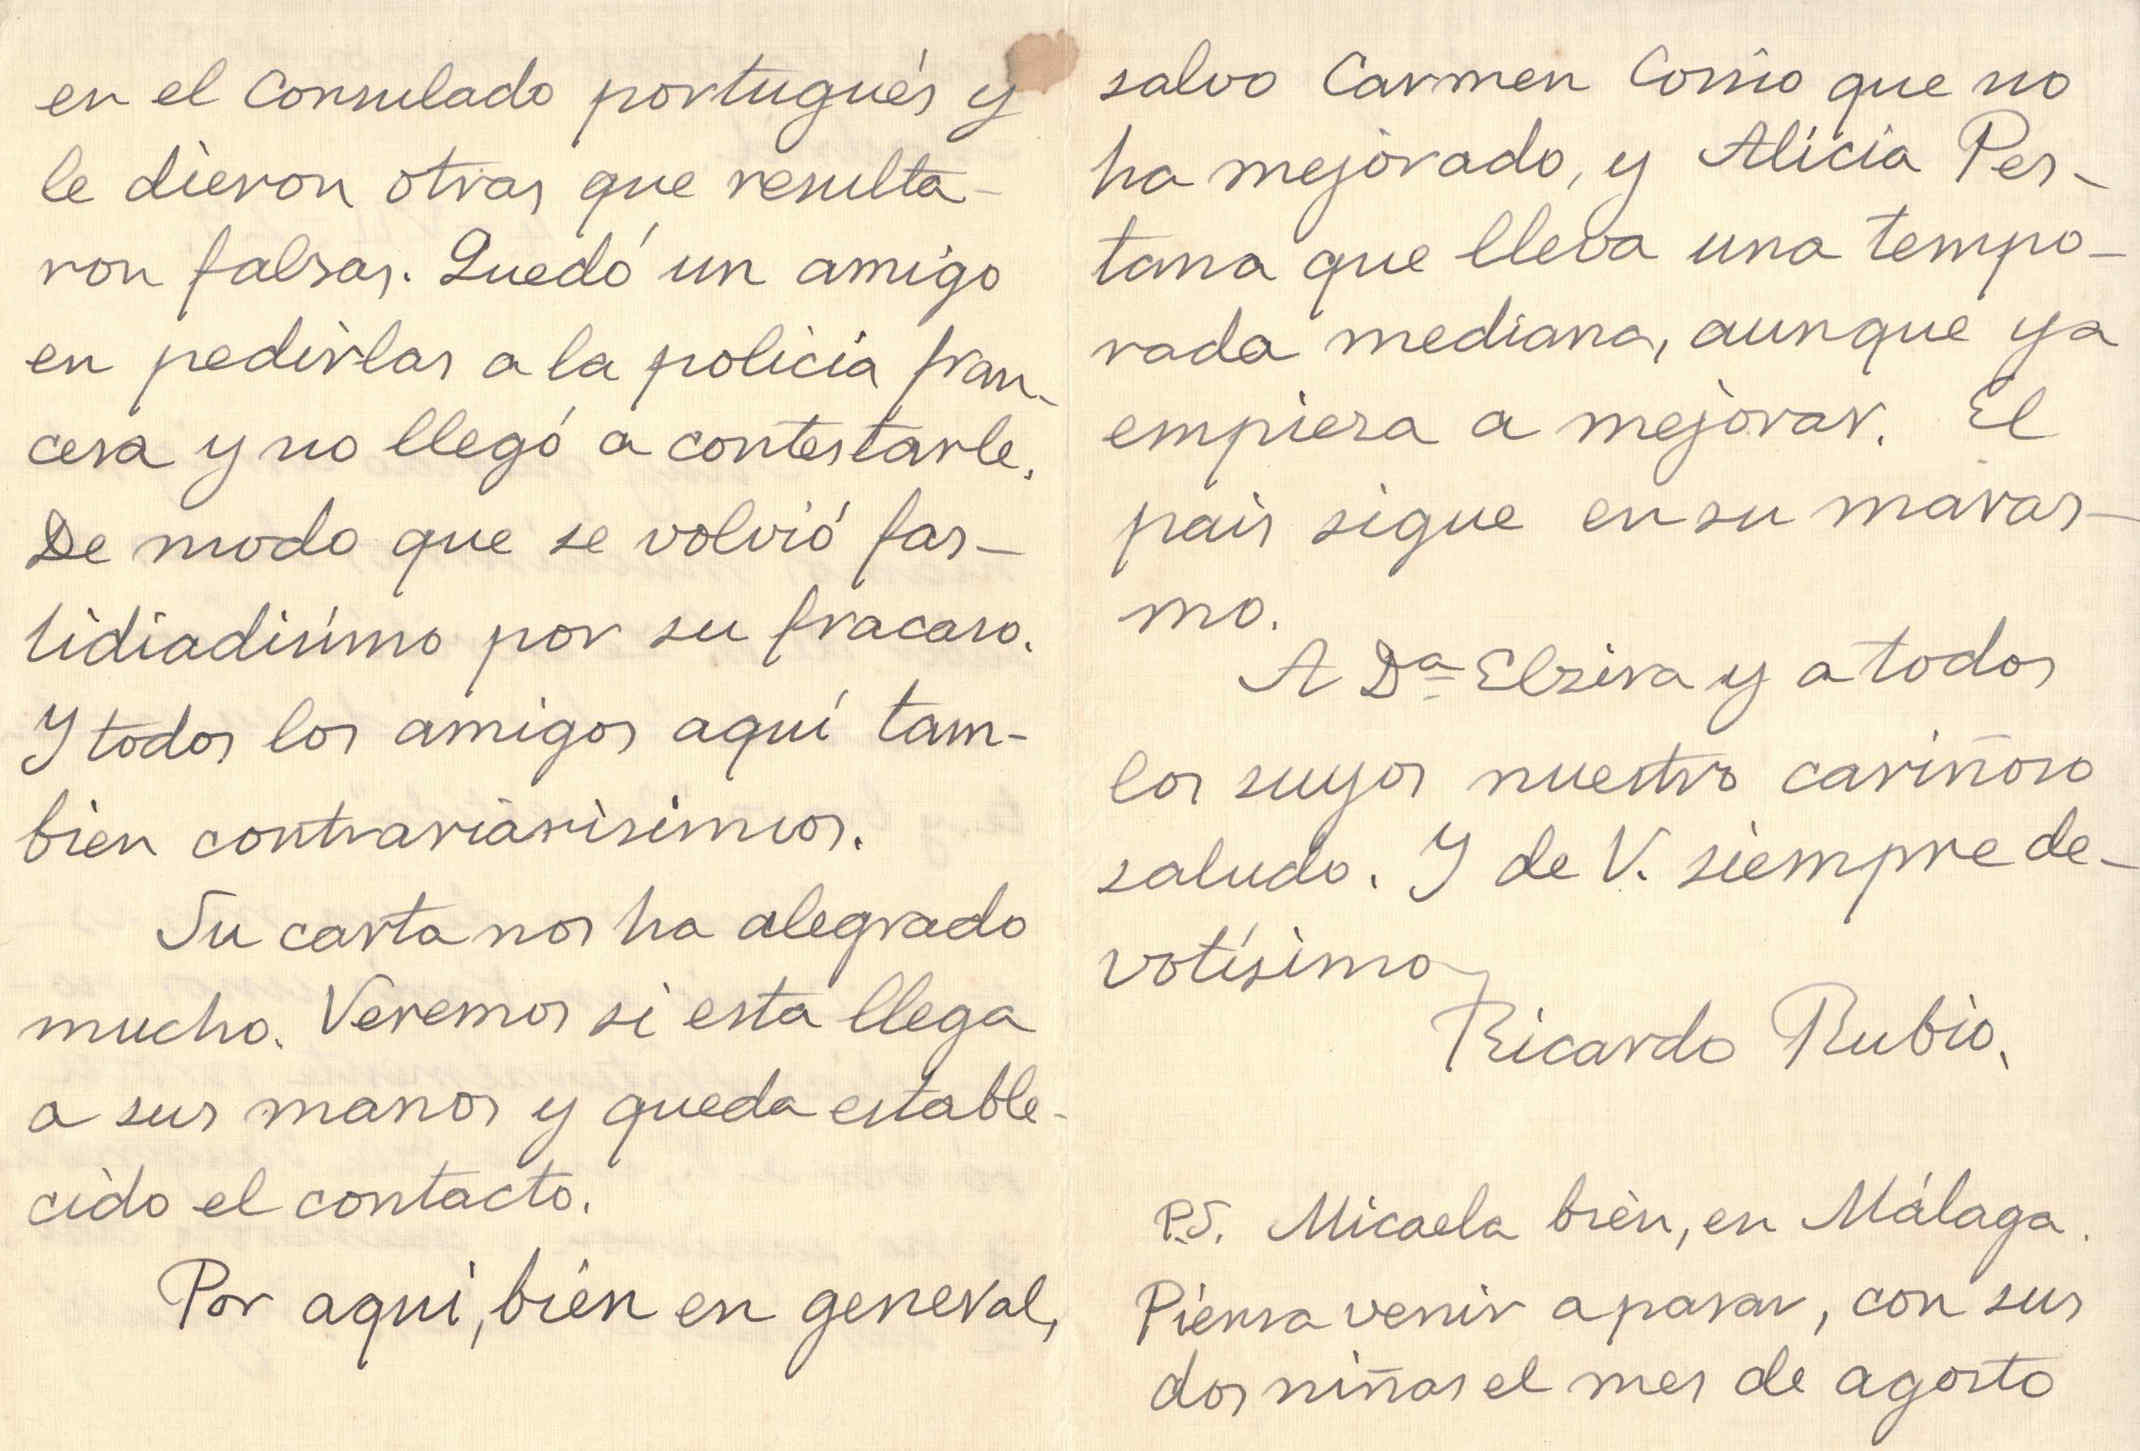 en el Consulado portugués y
le dieron otras que resulta-
ron falsas. Quedó un amigo
en pedirlas a la policia fran-
cesa y no llegó a contestarle.
De modo que se volvió fas-
tidiadísimo por su fracaso.
Y todos los amigos aquí tam-
bien contrariarisimos.
Su carta nos ha alegrado
mucho. Veremos si esta llega
a sus manos y queda estable-
cido el contacto.
Por aqui, bien en general,
salvo Carmen Cossio que no
ha mejorado, y Alicia Pes-
tana que lleva una tempo-
rada mediana, aunque ya
empieza a mejorar. El
pais sigue en su maras-
mo.
A Dª Elzira y a todos
los suyos nuestro cariñoso
saludo. Y de V. siempre de-
votísimo
Ricardo Rubio.
P.S. Micaela bien, en Málaga.
Piensa venir a pasar, con sus
dos niñas el mes de agosto